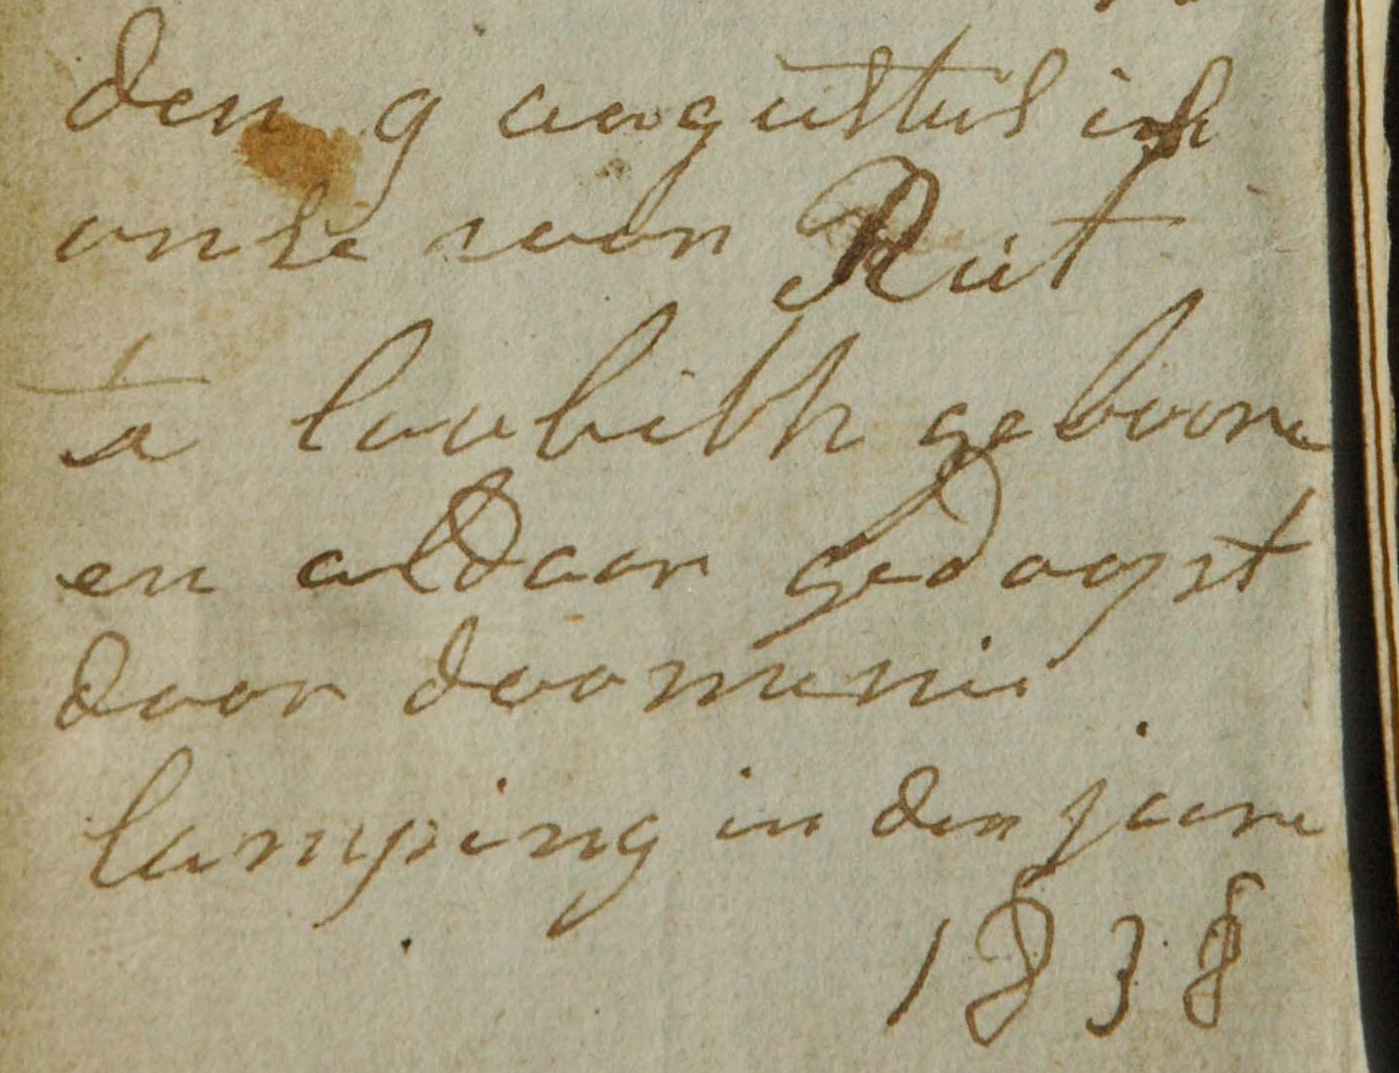 den 9 augustus is
onse soon Rut
te loubith geboore
en aldaar gedoopt
door doomenie
lamping in den jaare
1838